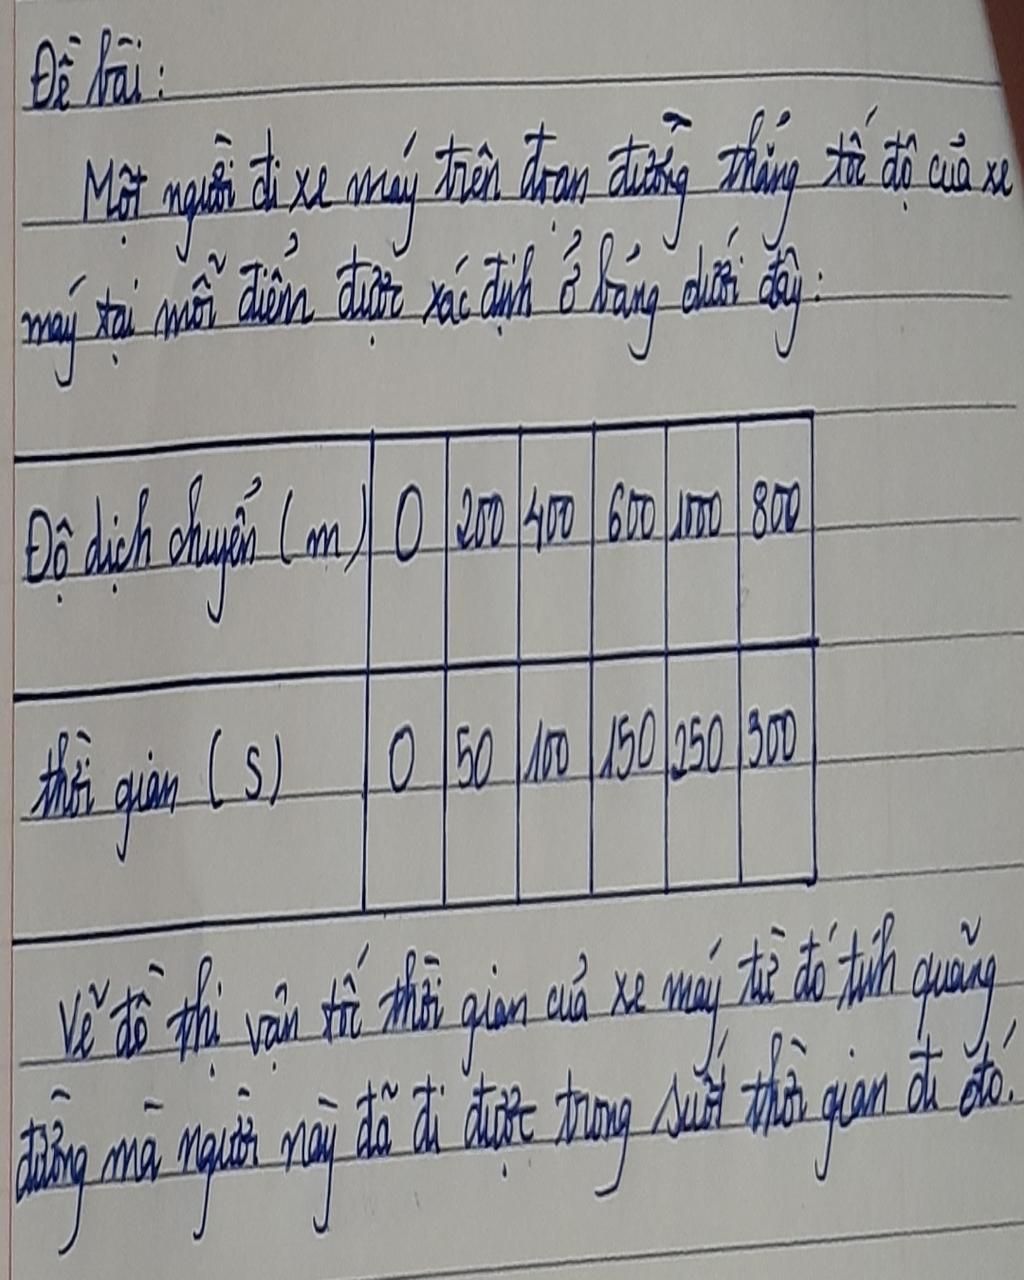 Đề bài:
Một người đi xe máy trên đoạn đường thẳng tốc độ của xe
máy tại mỗi điểm được xác định ở bảng dưới đây:
Độ dịch chuyển (m) 0 200 400 600 1000 800
thời gian (s) 0 50 100 150 250 300
Vẽ đồ thị vận tốc thời gian của xe máy từ đó tính quãng
đường mà người này đã đi được trong suốt thời gian đi đó.